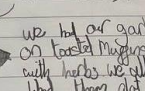 we had our gar
on toasted muffins
with herbs we g
had them